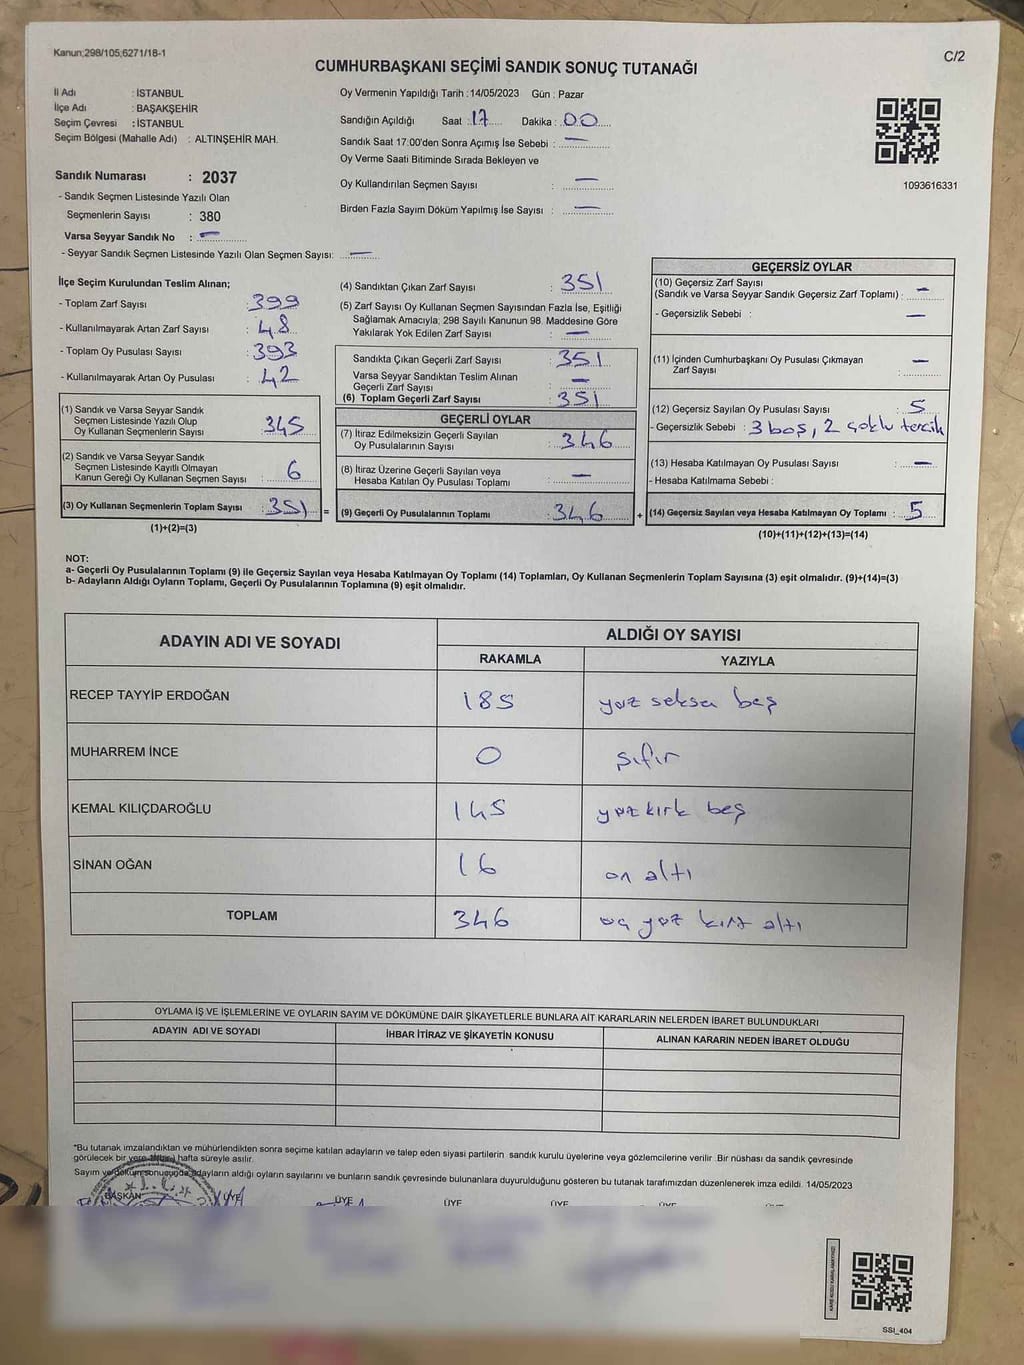 Kanun;298/105,6271/18-1
C/2
CUMHURBAŞKANI SEÇİMİ SANDIK SONUÇ TUTANAĞI
İl Adı : İSTANBUL
İlçe Adı : BAŞAKŞEHİR
Seçim Çevresi : İSTANBUL
Seçim Bölgesi (Mahalle Adı) : ALTINŞEHİR MAH.
Sandık Numarası : 2037
- Sandık Seçmen Listesinde Yazılı Olan
Seçmenlerin Sayısı : 380
Varsa Seyyar Sandık No : —
- Seyyar Sandık Seçmen Listesinde Yazılı Olan Seçmen Sayısı: —
Oy Vermenin Yapıldığı Tarih :14/05/2023 Gün : Pazar
Sandığın Açıldığı Saat : 17 Dakika : 00
Sandık Saat 17:00'den Sonra Açımış İse Sebebi : —
Oy Verme Saati Bitiminde Sırada Bekleyen ve
Oy Kullandırılan Seçmen Sayısı : —
Birden Fazla Sayım Döküm Yapılmış İse Sayısı : —
1093616331
İlçe Seçim Kurulundan Teslim Alınan;
- Toplam Zarf Sayısı : 399
- Kullanılmayarak Artan Zarf Sayısı : 48
- Toplam Oy Pusulası Sayısı : 393
- Kullanılmayarak Artan Oy Pusulası : 42
(1) Sandık ve Varsa Seyyar Sandık
Seçmen Listesinde Yazılı Olup
Oy Kullanan Seçmenlerin Sayısı : 345
(2) Sandık ve Varsa Seyyar Sandık
Seçmen Listesinde Kayıtlı Olmayan
Kanun Gereği Oy Kullanan Seçmen Sayısı : 6
(3) Oy Kullanan Seçmenlerin Toplam Sayısı : 351 =
(1)+(2)=(3)
(4) Sandıktan Çıkan Zarf Sayısı : 351
(5) Zarf Sayısı Oy Kullanan Seçmen Sayısından Fazla İse, Eşitliği
Sağlamak Amacıyla; 298 Sayılı Kanunun 98. Maddesine Göre
Yakılarak Yok Edilen Zarf Sayısı : —
Sandıkta Çıkan Geçerli Zarf Sayısı : 351
Varsa Seyyar Sandıktan Teslim Alınan
Geçerli Zarf Sayısı : —
(6) Toplam Geçerli Zarf Sayısı : 351
GEÇERLİ OYLAR
(7) İtiraz Edilmeksizin Geçerli Sayılan
Oy Pusulalarının Sayısı : 346
(8) İtiraz Üzerine Geçerli Sayılan veya
Hesaba Katılan Oy Pusulası Toplamı : —
(9) Geçerli Oy Pusulalarının Toplamı : 346 +
GEÇERSİZ OYLAR
(10) Geçersiz Zarf Sayısı
(Sandık ve Varsa Seyyar Sandık Geçersiz Zarf Toplamı) : —
- Geçersizlik Sebebi : —
(11) İçinden Cumhurbaşkanı Oy Pusulası Çıkmayan
Zarf Sayısı : —
(12) Geçersiz Sayılan Oy Pusulası Sayısı : 5
- Geçersizlik Sebebi : 3 boş, 2 çoklu tercih
(13) Hesaba Katılmayan Oy Pusulası Sayısı : —
- Hesaba Katılmama Sebebi :
(14) Geçersiz Sayılan veya Hesaba Katılmayan Oy Toplamı : 5
(10)+(11)+(12)+(13)=(14)
NOT:
a- Geçerli Oy Pusulalarının Toplamı (9) ile Geçersiz Sayılan veya Hesaba Katılmayan Oy Toplamı (14) Toplamları, Oy Kullanan Seçmenlerin Toplam Sayısına (3) eşit olmalıdır. (9)+(14)=(3)
b- Adayların Aldığı Oyların Toplamı, Geçerli Oy Pusulalarının Toplamına (9) eşit olmalıdır.
ADAYIN ADI VE SOYADI ALDIĞI OY SAYISI
RAKAMLA YAZIYLA
RECEP TAYYİP ERDOĞAN 185 yüz seksen beş
MUHARREM İNCE 0 sıfır
KEMAL KILIÇDAROĞLU 145 yüz kırk beş
SİNAN OĞAN 16 on altı
TOPLAM 346 üç yüz kırk altı
OYLAMA İŞ VE İŞLEMLERİNE VE OYLARIN SAYIM VE DÖKÜMÜNE DAİR ŞİKAYETLERLE BUNLARA AİT KARARLARIN NELERDEN İBARET BULUNDUKLARI
ADAYIN ADI VE SOYADI İHBAR İTİRAZ VE ŞİKAYETİN KONUSU ALINAN KARARIN NEDEN İBARET OLDUĞU
*Bu tutanak imzalandıktan ve mühürlendikten sonra seçime katılan adayların ve talep eden siyasi partilerin sandık kurulu üyelerine veya gözlemcilerine verilir. Bir nüshası da sandık çevresinde
görülecek bir yere hafta süreyle asılır.
Sayım ve döküm sonucunda adayların aldığı oyların sayılarını ve bunların sandık çevresinde bulunanlara duyurulduğunu gösteren bu tutanak tarafımızdan düzenlenerek imza edildi. 14/05/2023
BAŞKAN ÜYE ÜYE ÜYE ÜYE ÜYE ÜYE
SSI_404